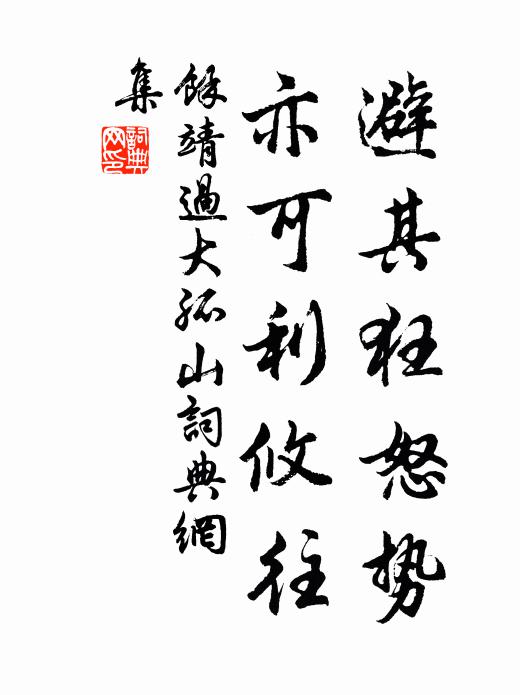 避其狂怒势
亦可利攸往
餘靖過大孤山詞典網
集
詞典網印